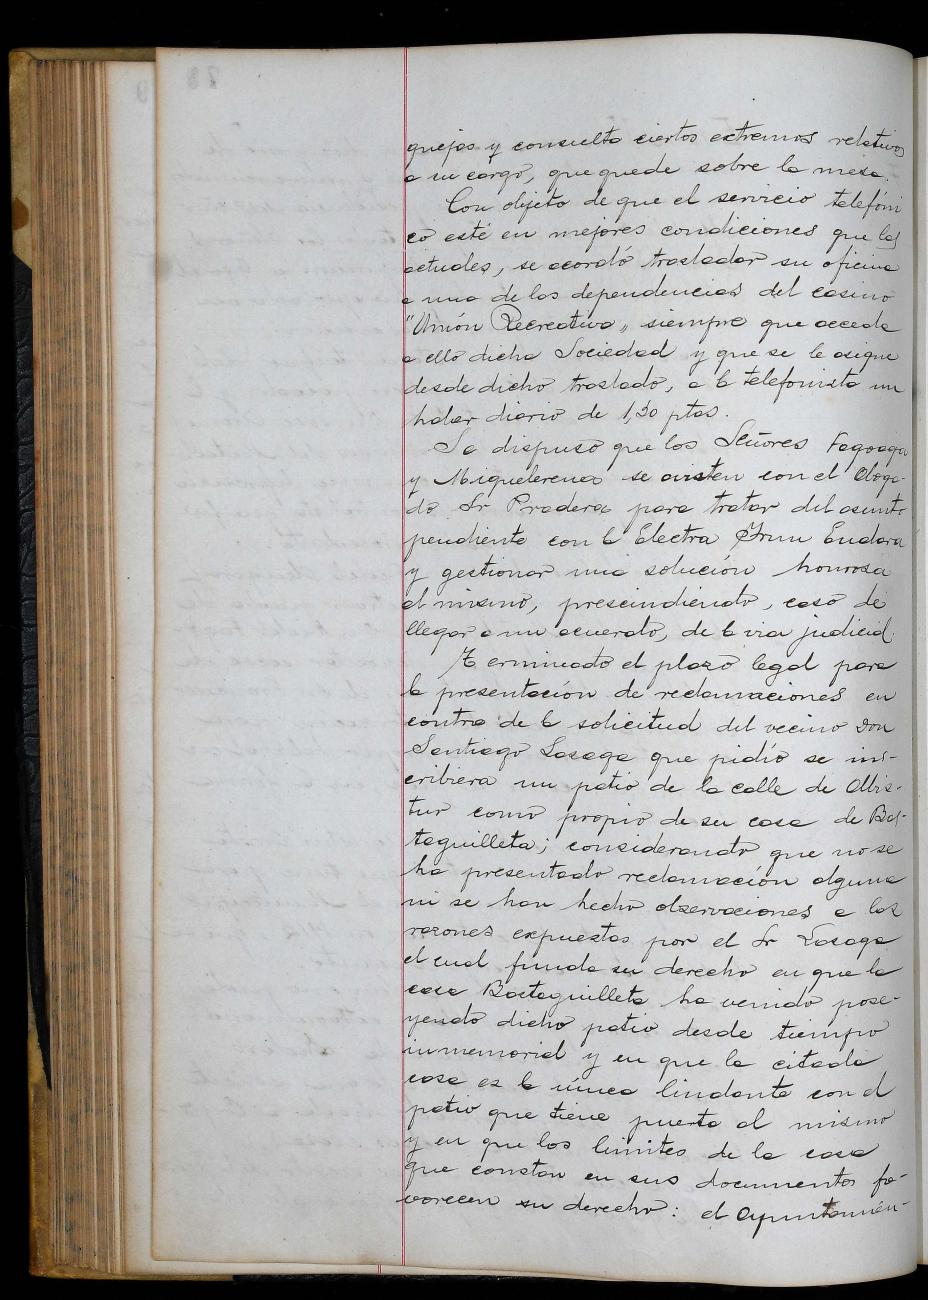 quejas y consulta ciertos extremos relativos
a su cargo, que quede sobre la mesa.
Con objeto de que el servicio telefóni
co esté en mejores condiciones que las
actuales, se acordó trasladar su oficina
a una de las dependencias del casino
"Unión Recreativa" siempre que acceda
a ello dicha Sociedad y que se le asigne
desde dicho traslado, a la telefonista un
haber diario de 1,50 ptas.
Se dispuso que los Señores Fagoaga
y Miquelerena se avisten con el Aboga-
do Sr Pradera para tratar del asunto
pendiente con la Electra Irun Endara
y gestionar una solución honrosa
al mismo, prescindiendo, caso de
llegar a un acuerdo, de la via judicial.
Terminado el plazo legal para
la presentación de reclamaciones en
contra de la solicitud del vecino Don
Santiago Lasaga que pidío se ins-
cribiera un patio de la calle de Albis-
tur como propio de su casa de Bas-
taguilleta; considerando que no se
ha presentado reclamación alguna
ni se han hecho observaciones a las
razones expuestas por el Sr Lasaga
el cual funda su derecho en que la
casa Bastaguilleta ha venido pose-
yendo dicho patio desde tiempo
inmemorial y en que la citada
casa es la única lindante con el
patio que tiene puerta al mismo
y en que los limites de la casa
que constan en sus documentos fa-
vorecen su derecho: el Ayuntamien-